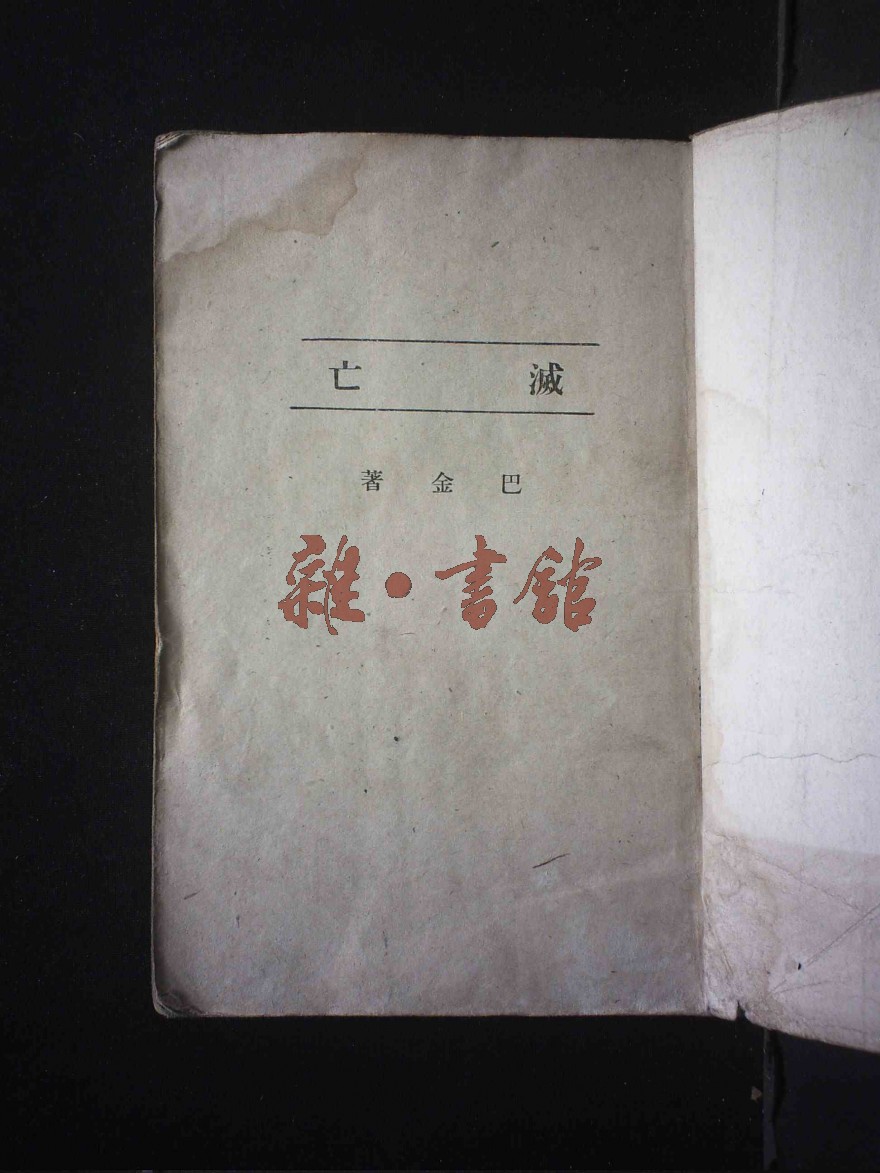 滅亡
巴金著
雜・書館